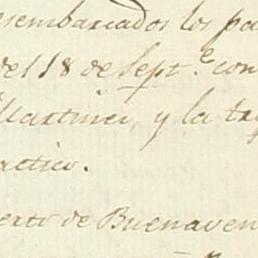 esembarcados los pa
de 118 de Sept.e con
Martinez, y la tr
actico.
erto de Buenaven